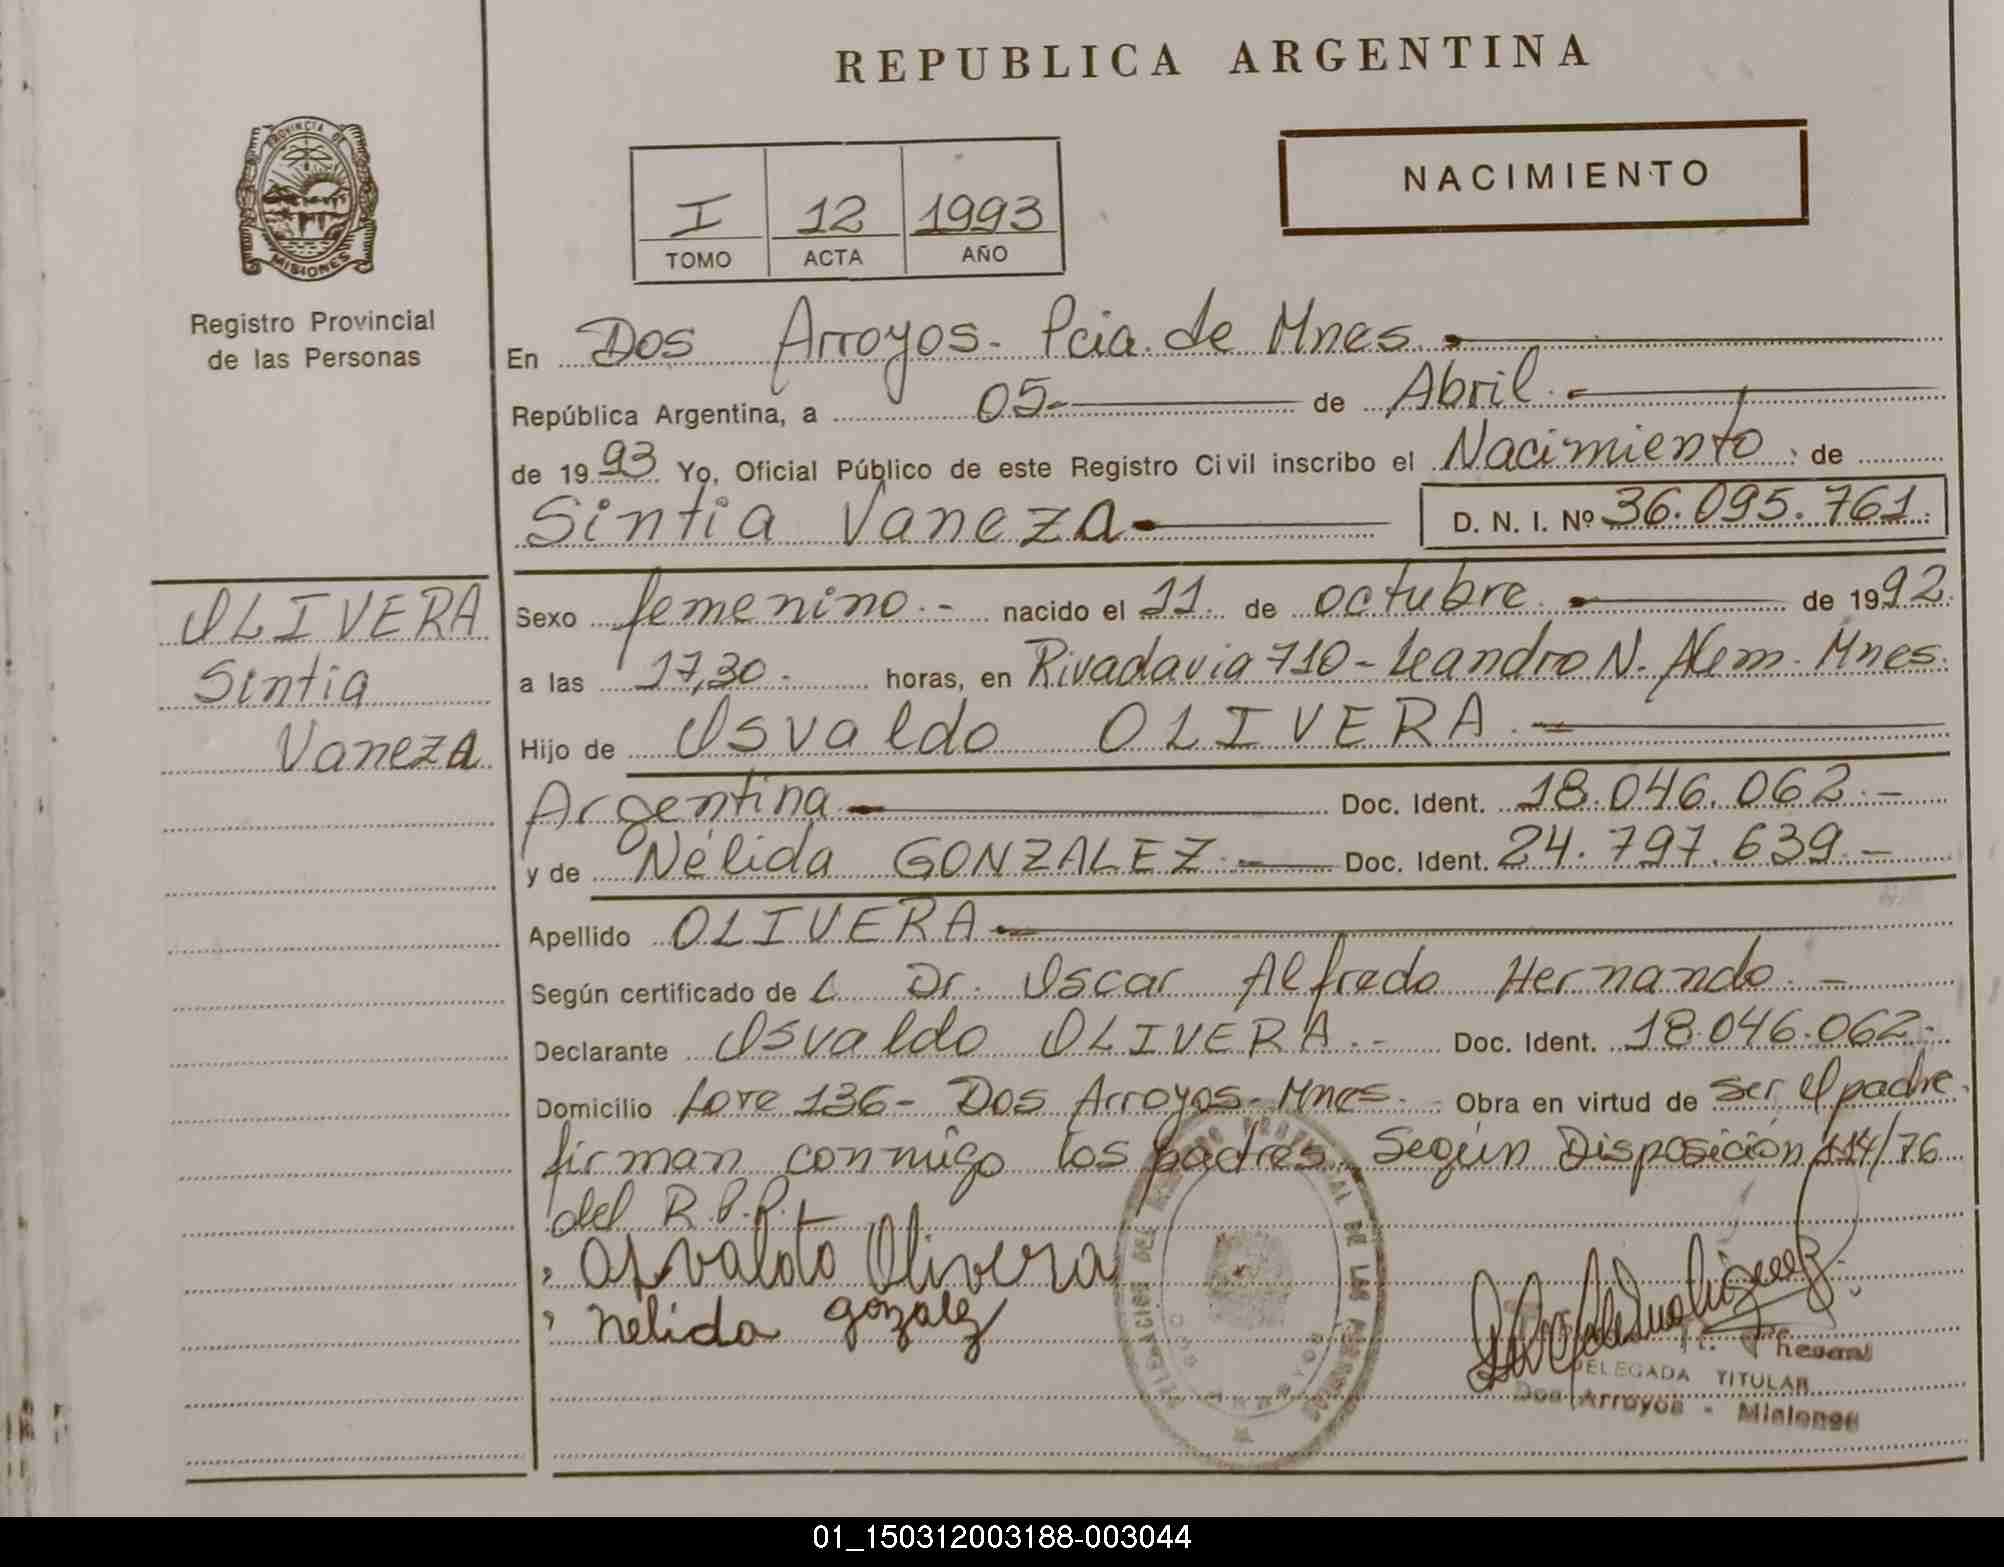 REPUBLICA ARGENTINA
PROVINCIA DE
MISIONES
Registro Provincial
de las Personas
I 12 1993
TOMO ACTA AÑO
NACIMIENTO
En Dos Arroyos- Pcia. de Mnes.
República Argentina, a 05- de Abril.
de 1993 Yo, Oficial Público de este Registro Civil inscribo el Nacimiento de
Sintia Vaneza D. N. I. Nº 36.095.761.
OLIVERA
Sintia
Vaneza
Sexo femenino.- nacido el 11. de octubre. de 1992.
a las 17,30.- horas, en Rivadavia 710- Leandro N. Alem. Mnes.
Hijo de Osvaldo OLIVERA.
Argentina Doc. Ident. 18.046.062.-
y de Nélida GONZALEZ. Doc. Ident. 24.797.639.-
Apellido OLIVERA
Según certificado de L. Dr. Oscar Alfredo Hernando.-
Declarante Osvaldo OLIVERA.- Doc. Ident. 18.046.062.-
Domicilio Lote 136- Dos Arroyos- Mnes. Obra en virtud de ser el padre.
firman conmigo los padres, Según Disposición 114/76
del R.P.P.
Osvaldo Olivera
Nélida gonzalez
DELEGACION DEL REGISTRO PROVINCIAL DE LAS PERSONAS
DELEGADA TITULAR
Dos Arroyos - Misiones
01_150312003188-003044